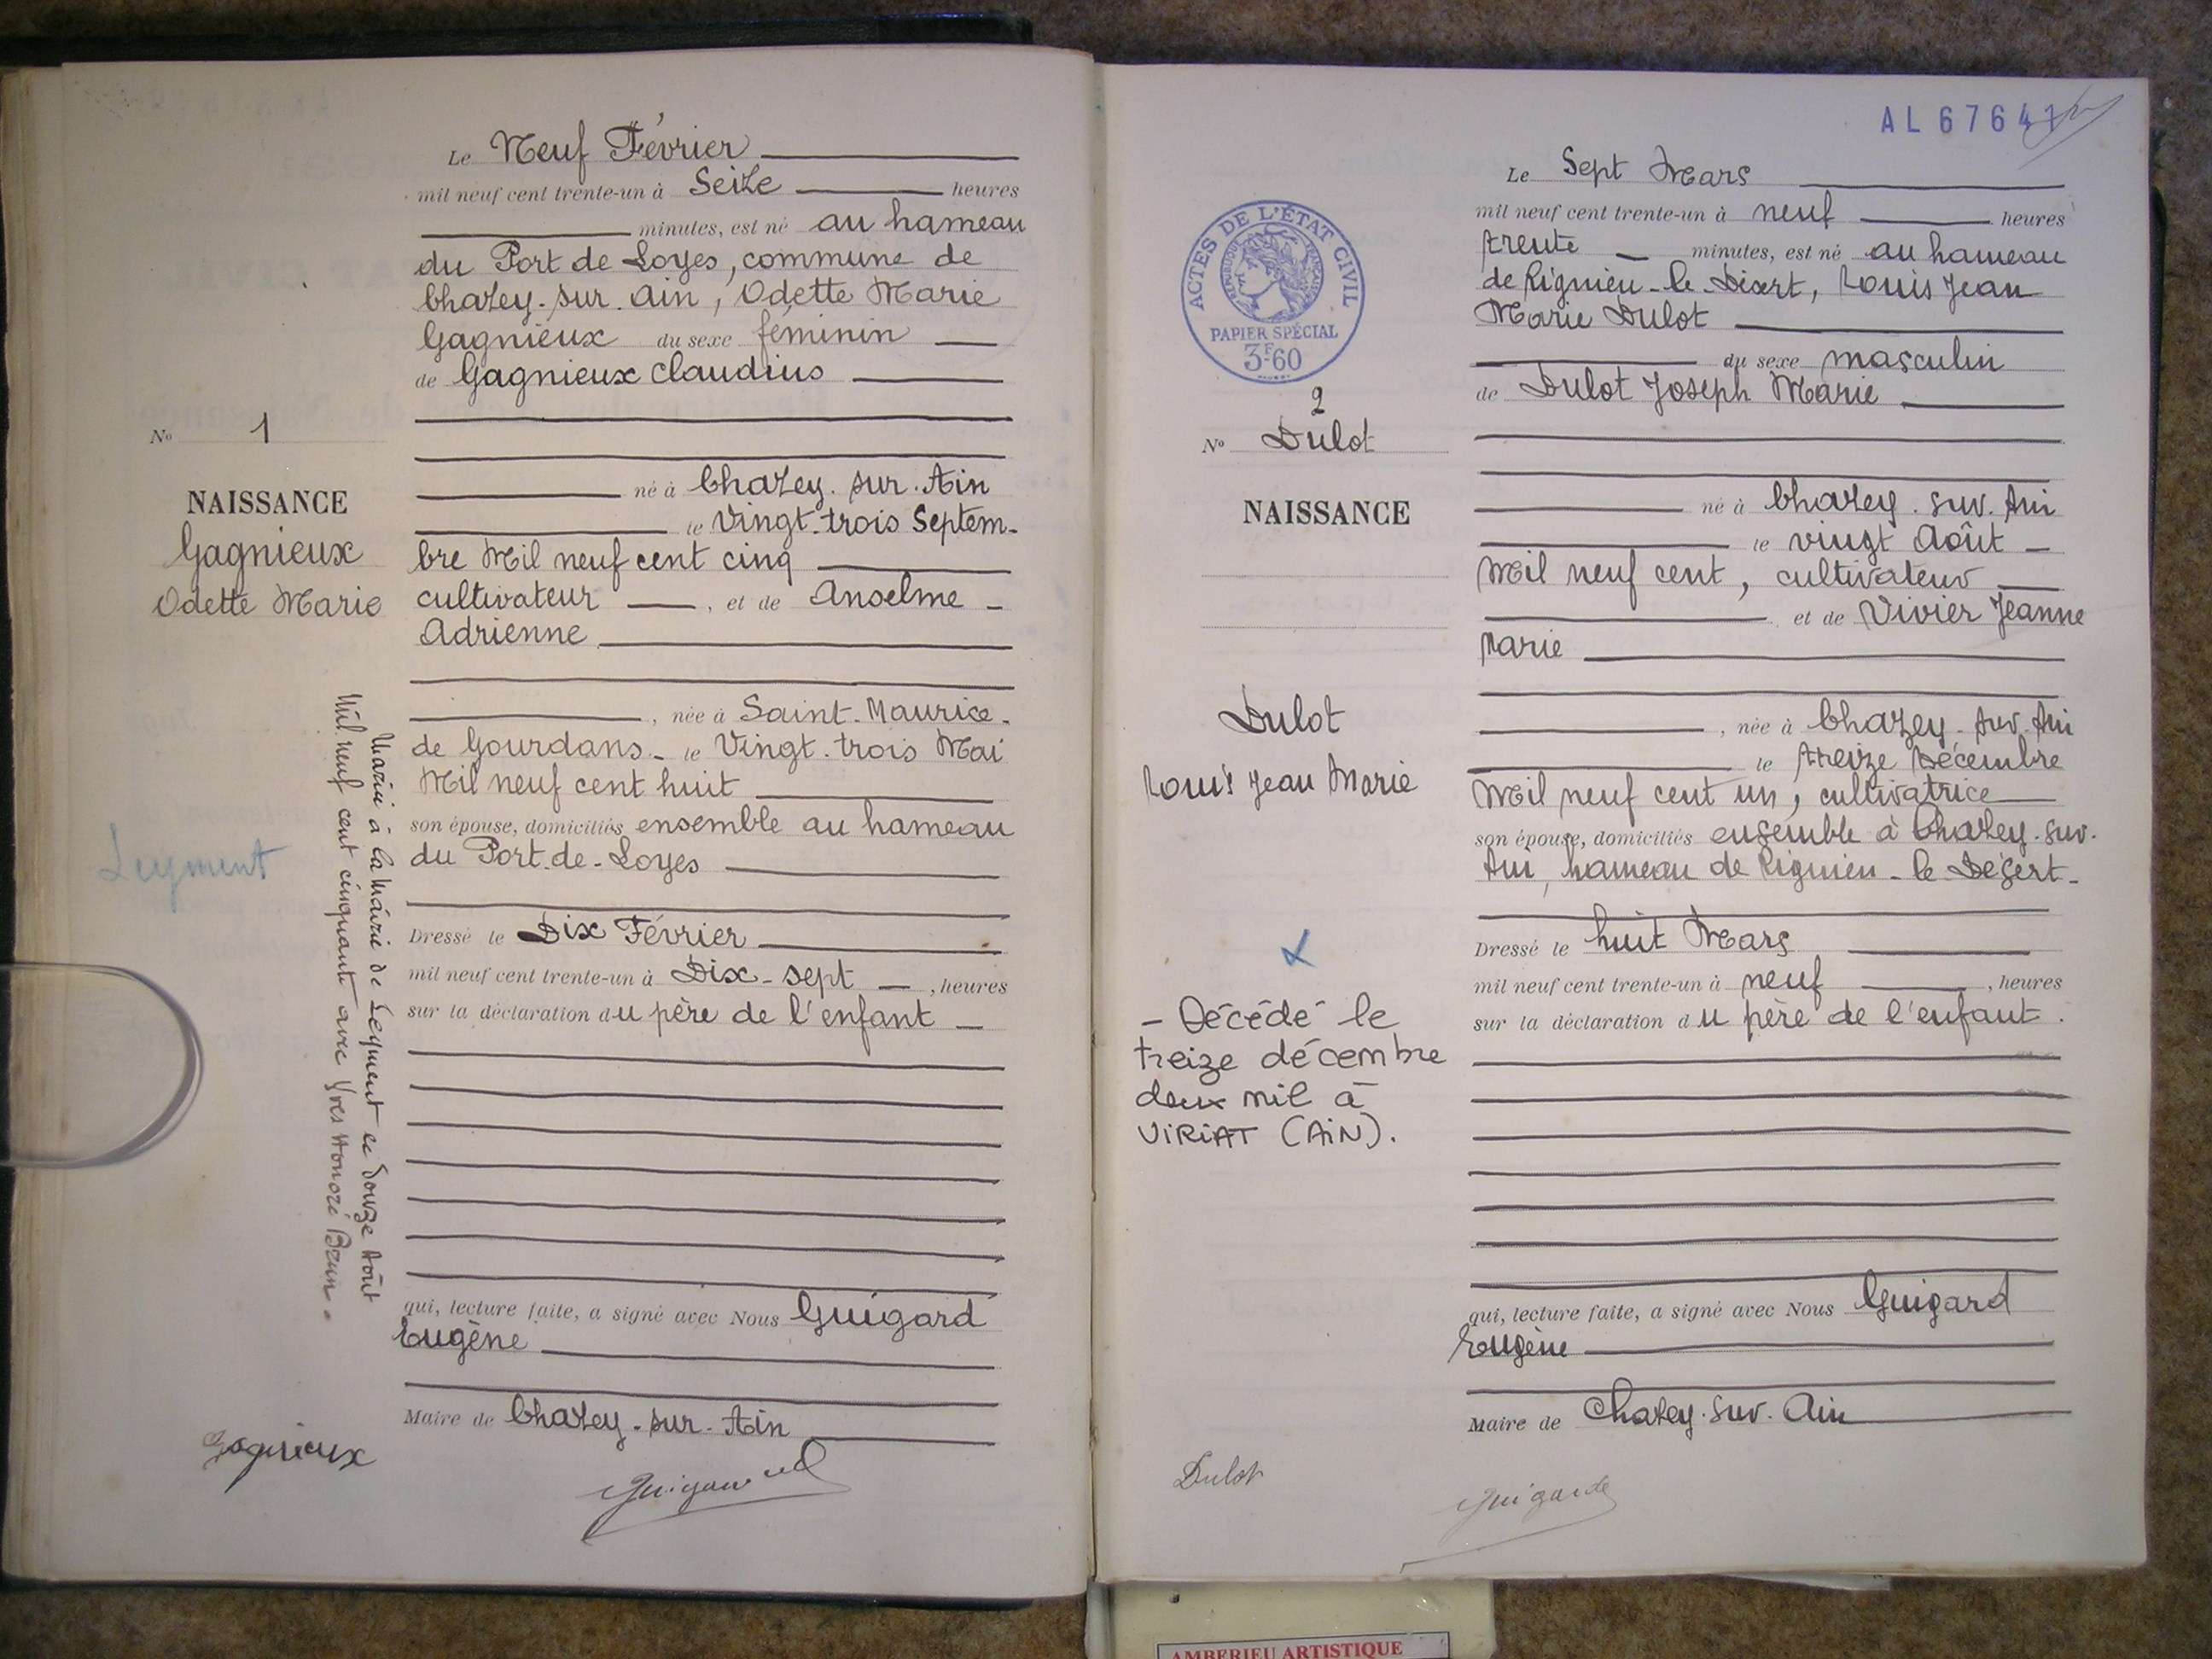 Le Neuf Février
mil neuf cent trente-un à Seize heures
minutes, est né au hameau
du Port de Loyes, commune de
Chazey-sur-Ain, Odette Marie
Gagnieux du sexe féminin
de Gagnieux Claudius
né à Chazey-sur-Ain
le Vingt-trois Septem-
bre Mil neuf cent cinq
cultivateur, et de Anselme
Adrienne
, née à Saint-Maurice-
de Gourdans le Vingt-trois Mai
Mil neuf cent huit
son épouse, domiciliés ensemble au hameau
du Port-de-Loyes
Dressé le Dix Février
mil neuf cent trente-un à Dix-sept, heures
sur la déclaration du père de l'enfant
qui, lecture faite, a signé avec Nous Guigard
Eugène
Maire de Chazey-sur-Ain
No 1
NAISSANCE
Gagnieux
Odette Marie
Leyment
Marié à la Mairie de Leyment le douze Août
Mil neuf cent cinquante avec Yves Honoré Brun.
Gagnieux
Guigard
AL 6764
ACTES DE L'ÉTAT CIVIL
RÉPUBLIQUE FRANÇAISE
PAPIER SPÉCIAL
3F60
Le Sept Mars
mil neuf cent trente-un à neuf heures
trente minutes, est né au hameau
de Rignieu-le-Désert, Louis Jean
Marie Dulot
du sexe masculin
de Dulot Joseph Marie
né à Chazey-sur-Ain
le vingt Août
Mil neuf cent, cultivateur
et de Vivier Jeanne
Marie
, née à Chazey-sur-Ain
le treize Décembre
Mil neuf cent un, cultivatrice
son épouse, domiciliés ensemble à Chazey-sur-
Ain, hameau de Rignieu-le-Désert-
Dressé le huit Mars
mil neuf cent trente-un à neuf, heures
sur la déclaration du père de l'enfant.
qui, lecture faite, a signé avec Nous Guigard
Eugène
Maire de Chazey-sur-Ain
2
No Dulot
NAISSANCE
Dulot
Louis Jean Marie
- Décédé le
treize décembre
deux mil à
VIRIAT (AIN).
Dulot
Guigard
AMBERIEU ARTISTIQUE